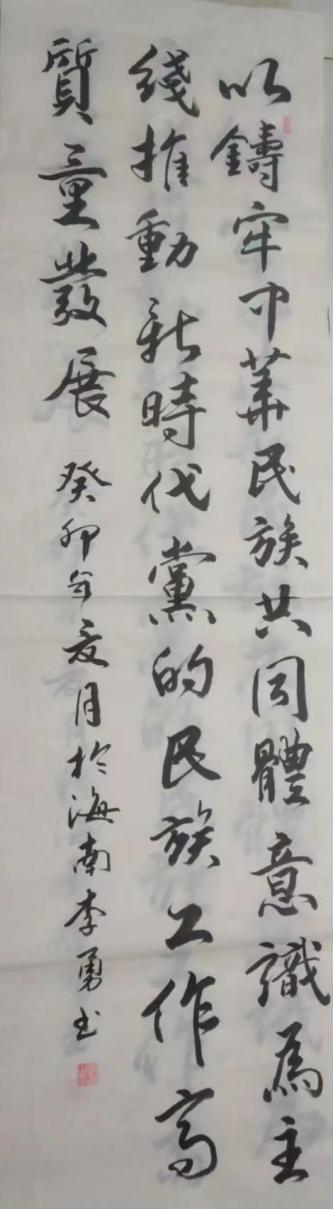 以鑄牢中華民族共同體意識為主
綫推動新時代黨的民族工作高
質量發展
癸卯年夏月於海南李勇书